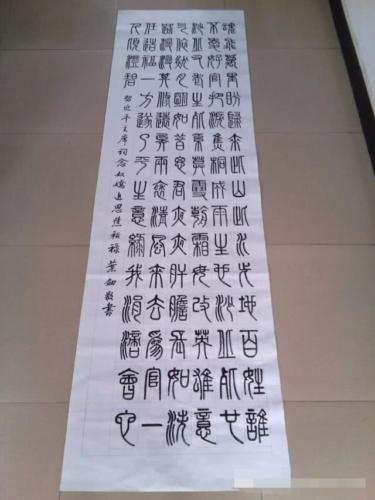 魂飛萬里盼歸來此山此水此地百姓誰
不愛好官把淚焦桐成雨生也沙丘死也
沙丘父老生死系暮雪朝霜毋改英雄意
氣依然月明如昔思君夜夜肝膽長如洗
路漫漫其修遠矣兩袖清風來去為官一
任造福一方遂了平生意綠我涓滴會它
千頃澄碧
習近平主席詞念奴嬌追思焦裕祿 葉書